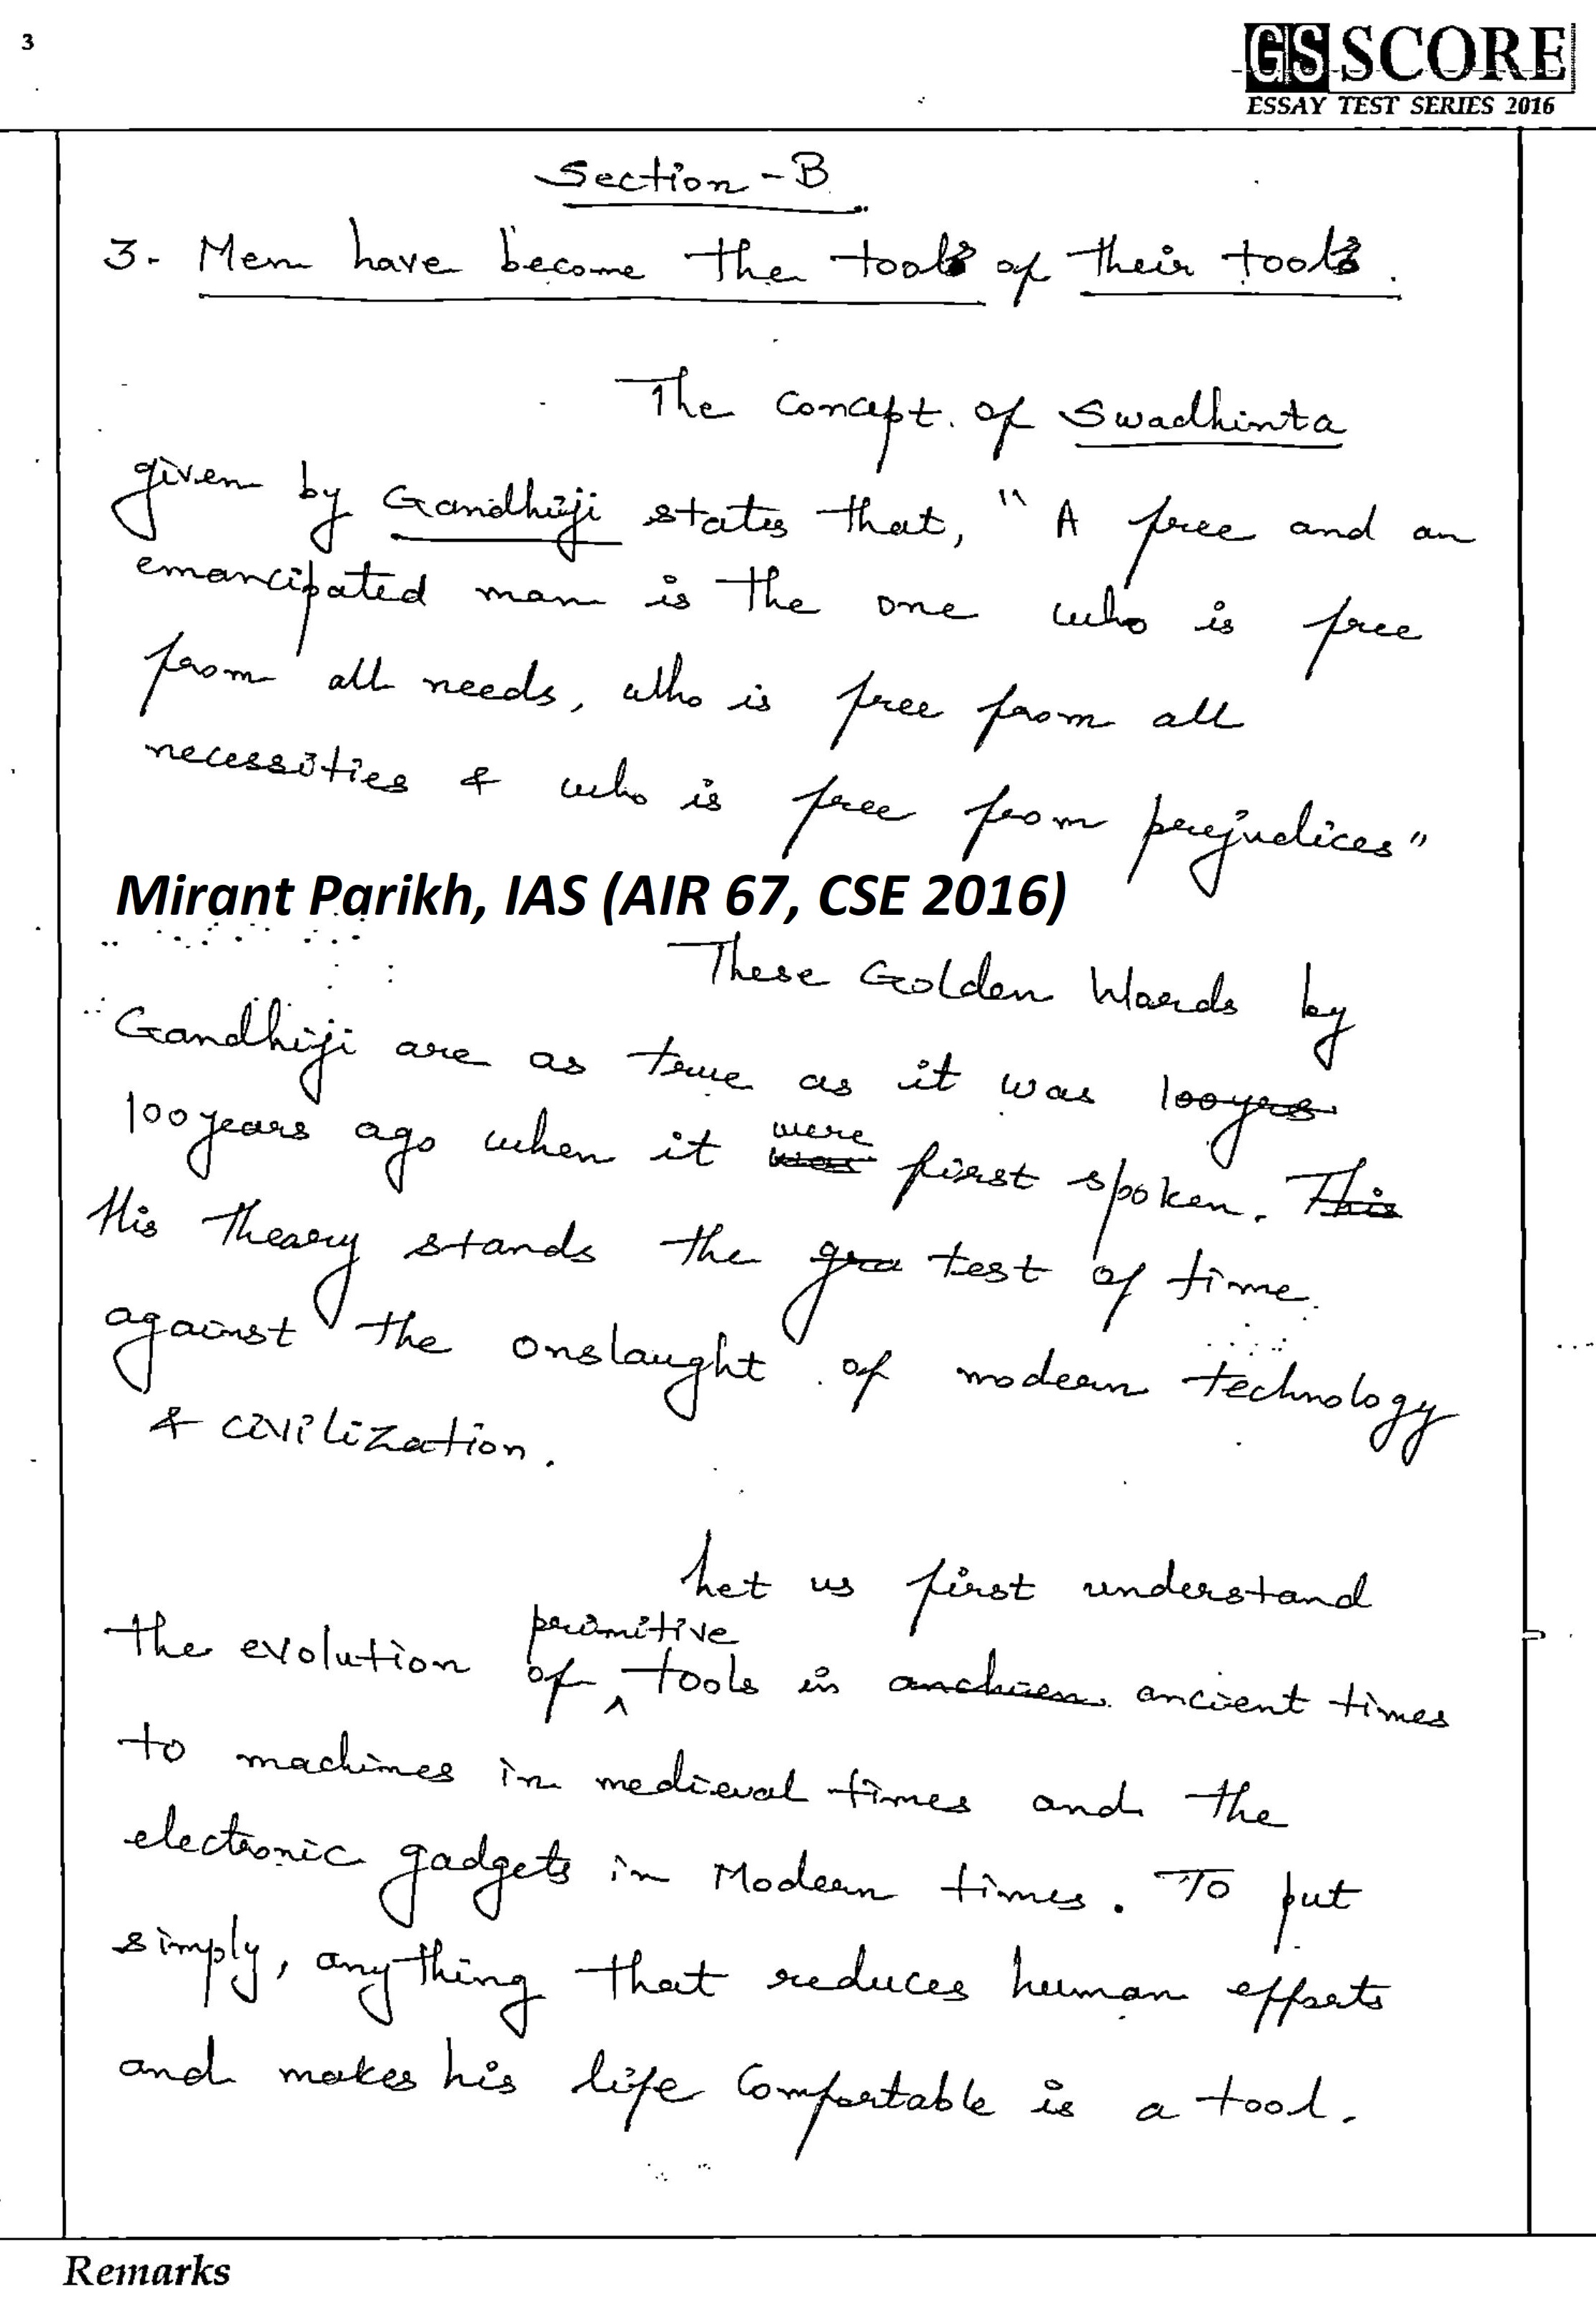 3
GS SCORE
ESSAY TEST SERIES 2016
Section - B
3. Men have become the tools of their tools.
The concept of Swadhinta
given by Gandhiji states that, "A free and an
emancipated man is the one who is free
from all needs, who is free from all
necessities & who is free from prejudices"
Mirant Parikh, IAS (AIR 67, CSE 2016)
These Golden Words by
Gandhiji are as true as it was 100yrs
100years ago when it were was first spoken. This
His theory stands the gra test of time
against the onslaught of modern technology
& civilization.
Let us first understand
the evolution of primitive tools in anchien ancient times
to machines in medieval times and the
electronic gadgets in Modern times. To put
simply, anything that reduces human efforts
and makes his life comfortable is a tool.
Remarks